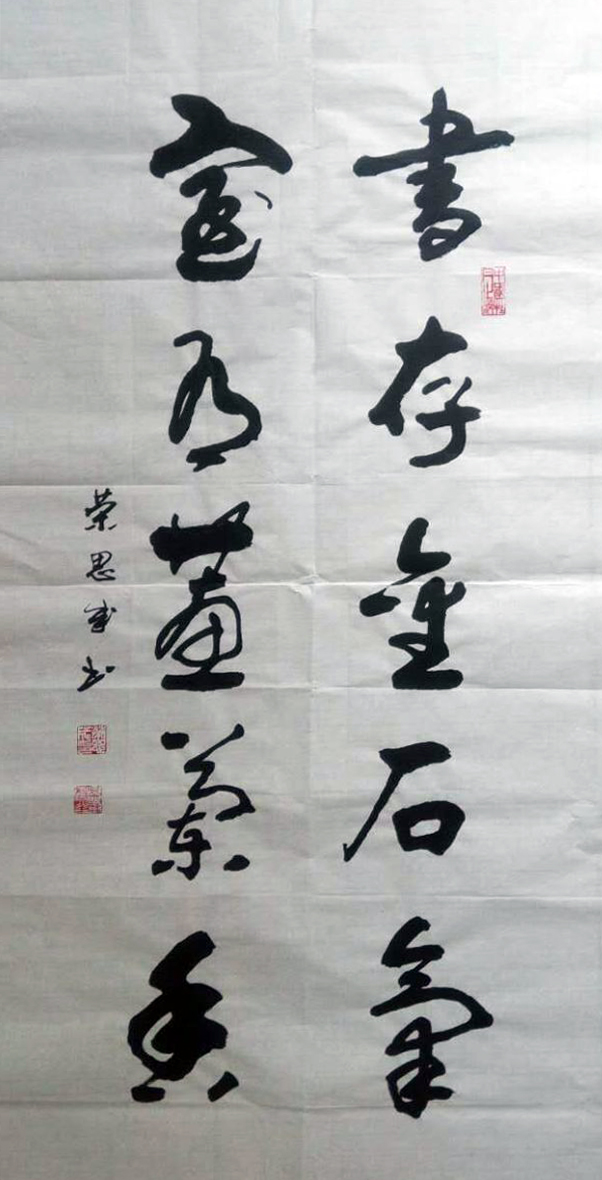 書存金石氣
室有蕙蘭香
荣思书